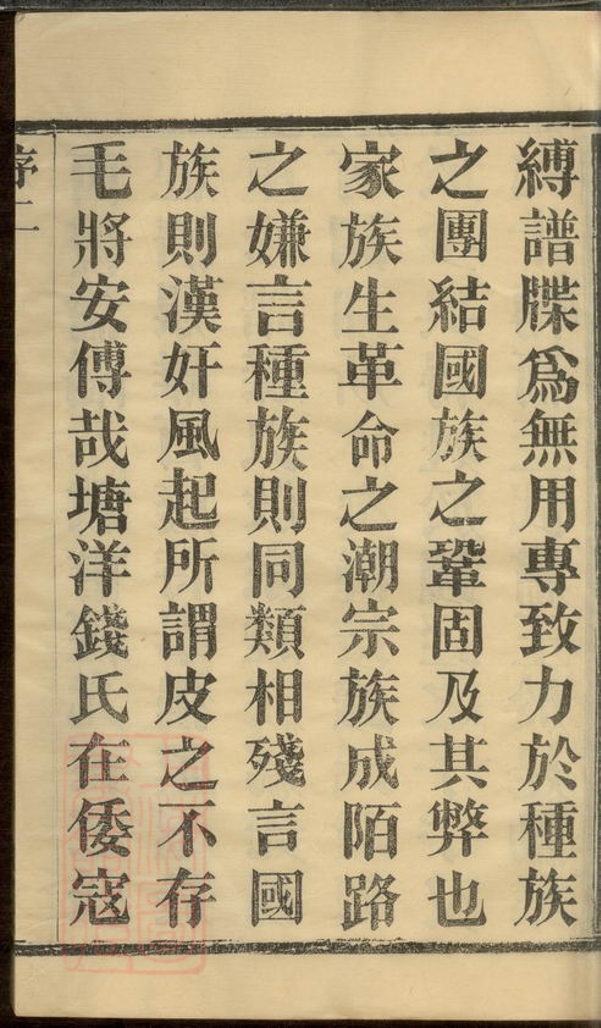 縛譜牒爲無用專致力於種族
之團結國族之鞏固及其弊也
家族生革命之潮宗族成陌路
之嫌言種族則同類相殘言國
族則漢奸風起所謂皮之不存
毛將安傅哉塘洋錢氏在倭寇
序二